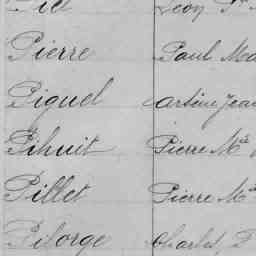 Léon
Pierre Paul Ma
Piquel Arsène Jean
Pihuit Pierre Mie
Pillet Pierre Mie
Pilorge Charles F